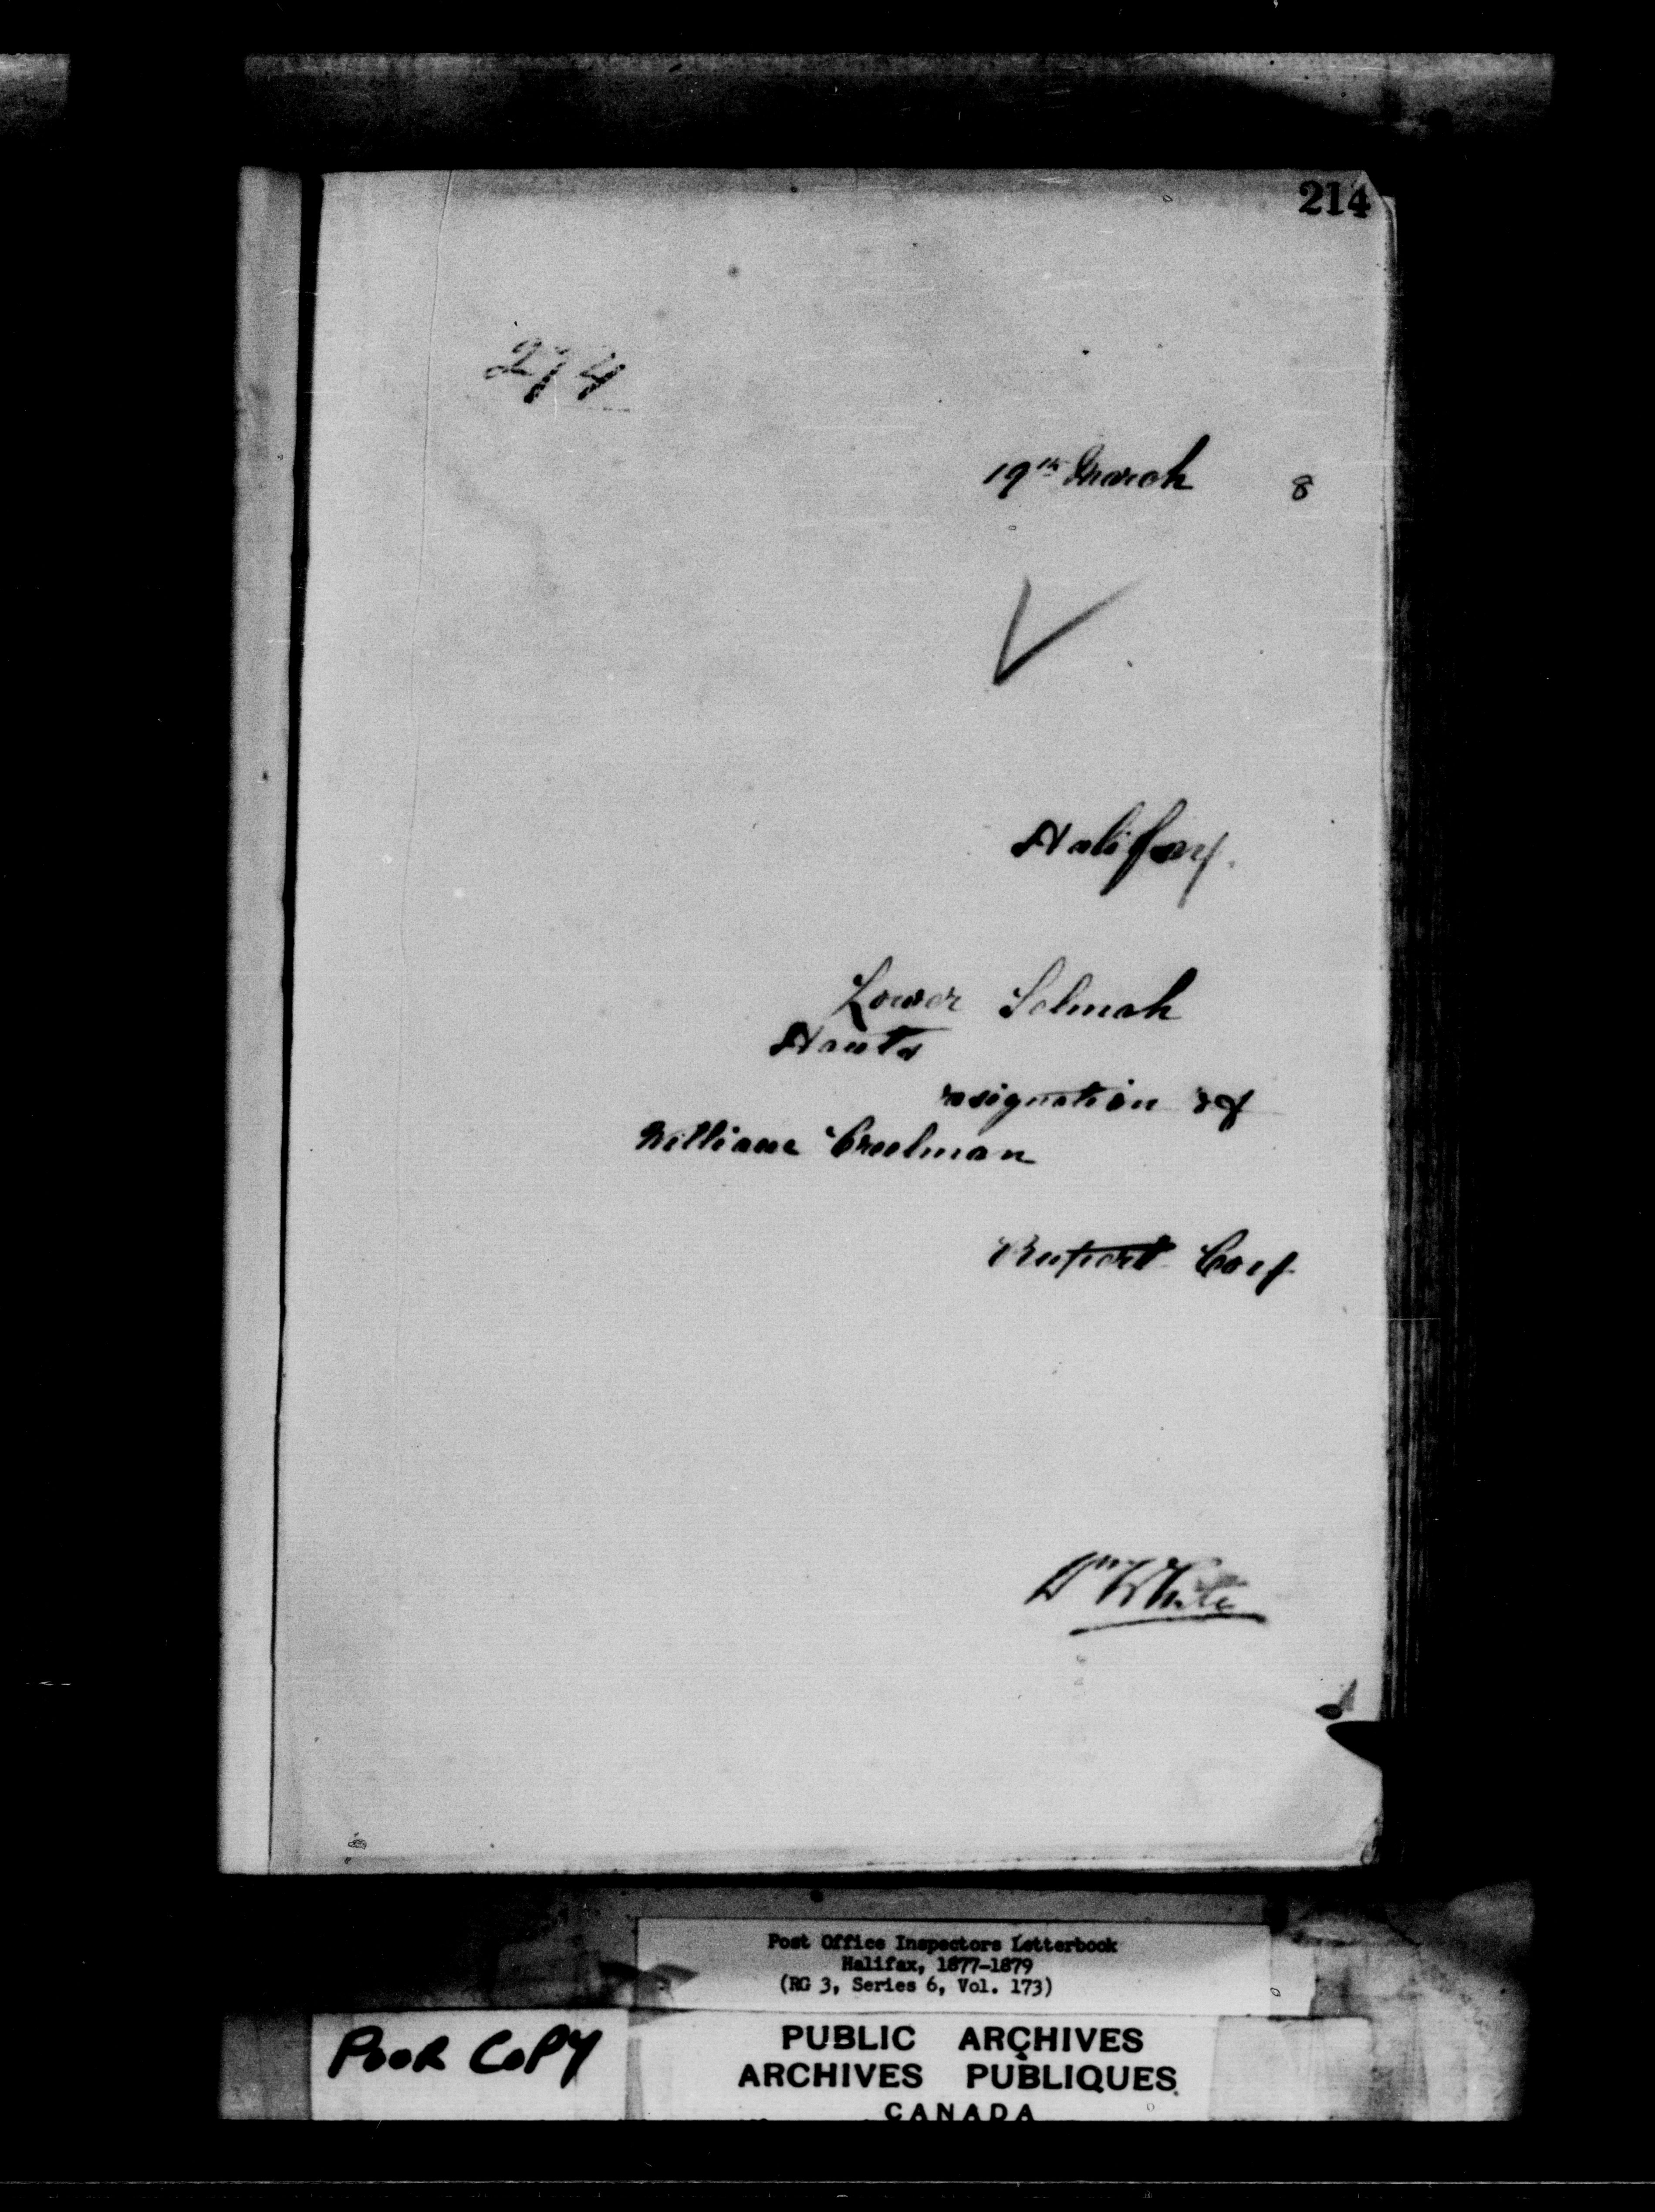 214
274
19th March 8
Halifax.
Lower Selmah
Hants
resignation of
William Creelman
Rupert Cox
Wm White
Post Office Inspectors Letterbook
Halifax, 1877-1879
(RG 3, Series 6, Vol. 173)
POOR COPY
PUBLIC ARCHIVES
ARCHIVES PUBLIQUES
CANADA